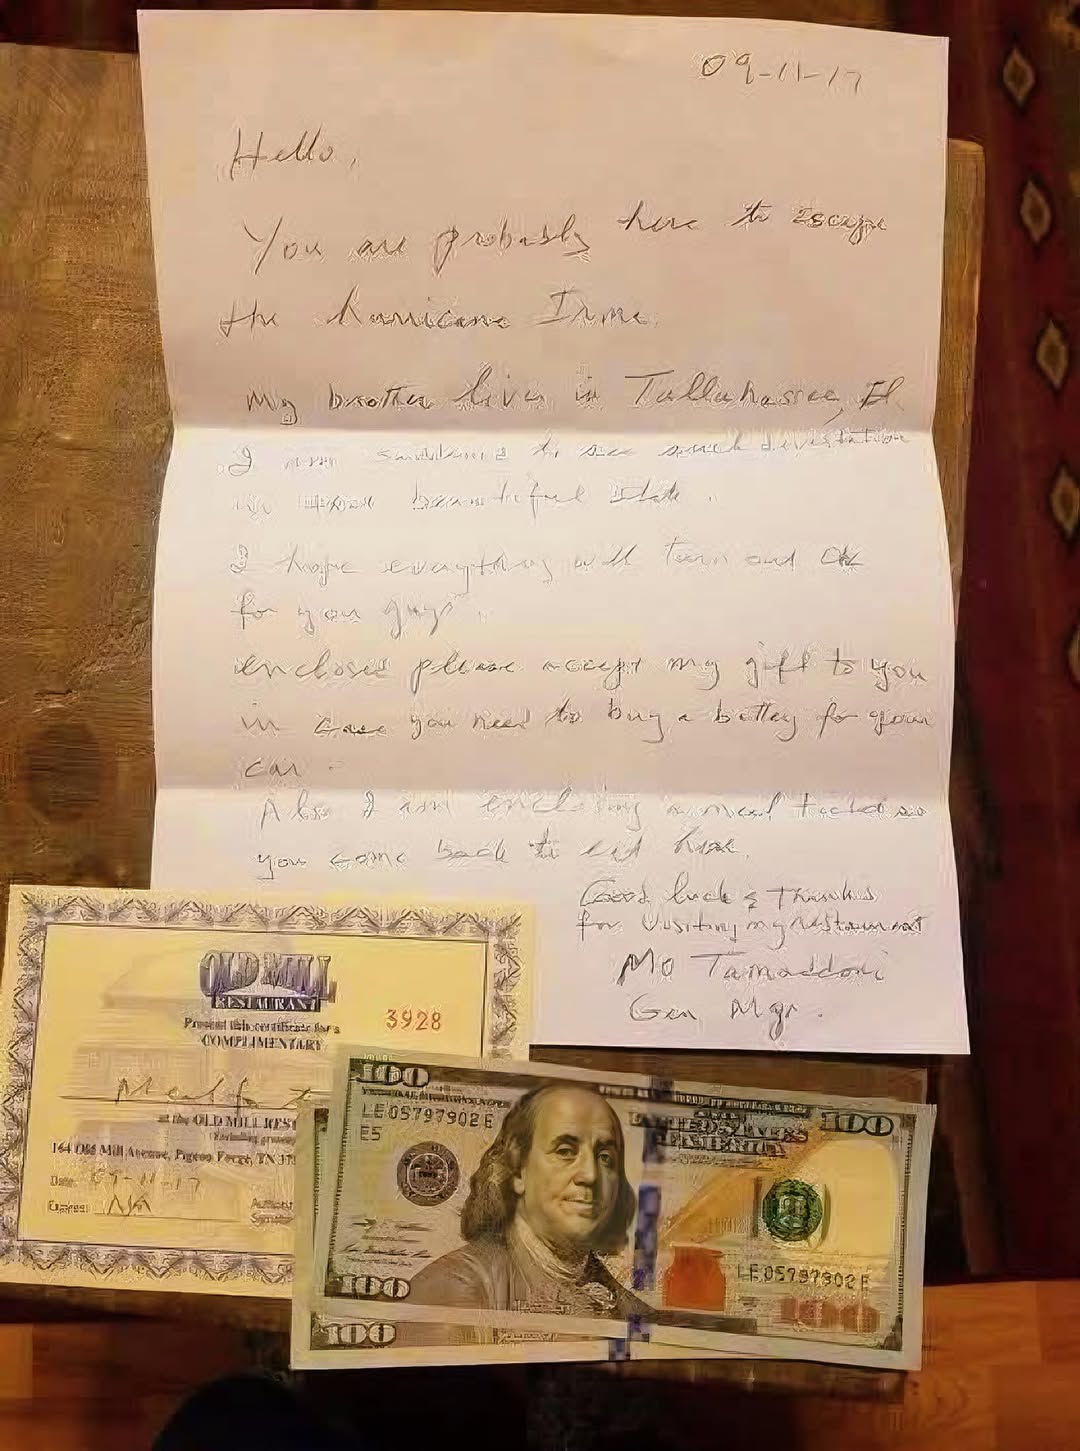 09-11-17
Hello,
You are probably here to Escape
the hurricane Irma.
My brother live in Tallahassee, FL
I am to see such
in beautiful State.
I hope everything will turn out OK
for you guys.
enclosed please accept my gift to you
in case you need to buy a battery for your
car.
Also I am enclosing a meal ticket so
you come back to eat here.
Good luck & Thanks
for Visiting my restaurant
Mo Tamaddoni
Gen Mgr.
OLD MILL
RESTAURANT
3928
Present this certificate for a
COMPLIMENTARY
Meal for
at the OLD MILL RES
164 Old Mill Avenue, Pigeon Forge, TN 37
Date: 09-11-17
Expires: N/A
100
LE05797902E
E5
100
100
LE05797902E
100
100